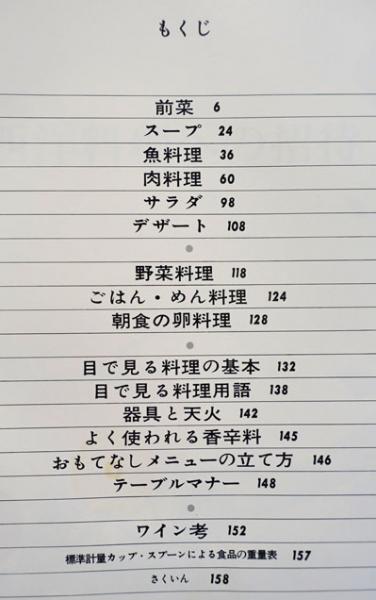 もくじ
前菜 6
スープ 24
魚料理 36
肉料理 60
サラダ 98
デザート 108
野菜料理 118
ごはん・めん料理 124
朝食の卵料理 128
目で見る料理の基本 132
目で見る料理用語 138
器具と天火 142
よく使われる香辛料 145
おもてなしメニューの立て方 146
テーブルマナー 148
ワイン考 152
標準計量カップ・スプーンによる食品の重量表 157
さくいん 158